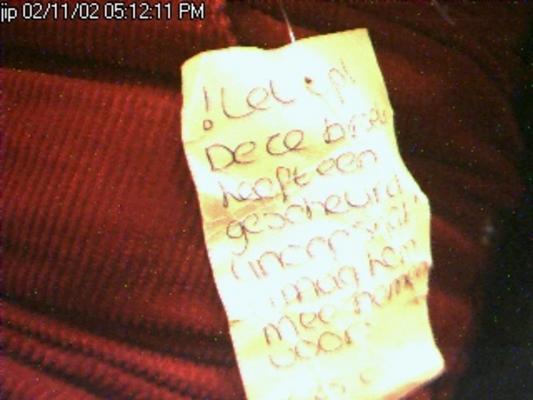 jip 02/11/02 05:12:11 PM
! Let op!
Deze broek
heeft een
gescheurd
mag hem
mee nemen
voor